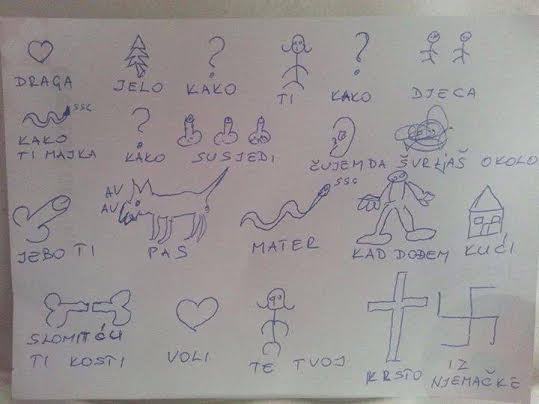 DRAGA JELO KAKO TI KAKO DJECA
sss
KAKO
TI MAJKA KAKO SUSJEDI ČUJEM DA ŠVRLJAŠ OKOLO
AV
AV
sss
JEBO TI PAS MATER KAD DOĐEM KUĆI
SLOMIT ĆU
TI KOSTI VOLI TE TVOJ KRSTO IZ
NJEMAČKE